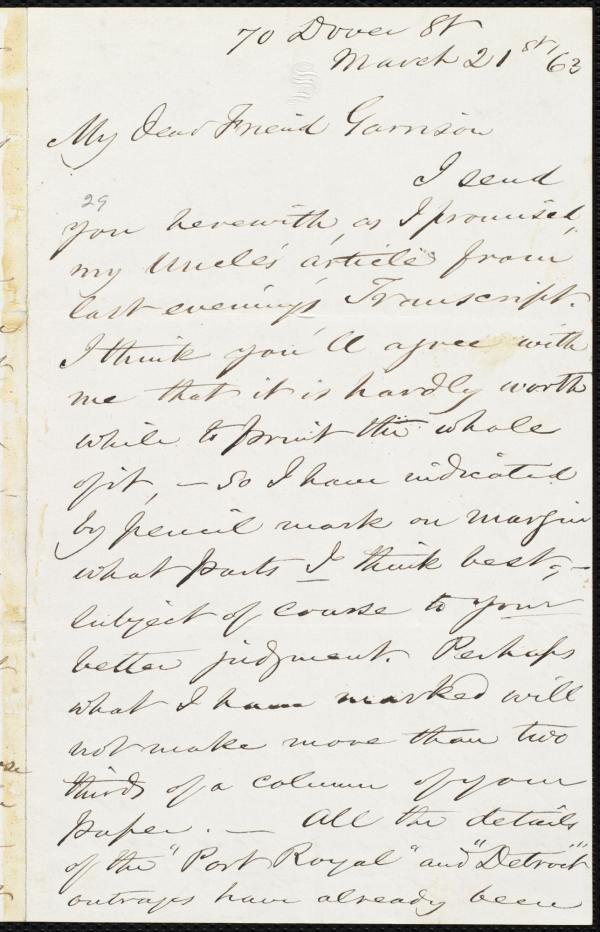 70 Dover St
March 21st, 63
My Dear Friend Garrison
I send
29
you herewith, as I promised,
my Uncle's article from
last evening's Transcript.
I think you'll agree with
me that it is hardly worth
while to print the whole
of it, — so I have indicated
by pencil mark on margin
what parts I think best, —
subject of course to your
better judgment. Perhaps
what I have marked will
not make more than two
thirds of a column of your
paper. — All the details
of the "Port Royal" and "Detroit"
outrages have already been